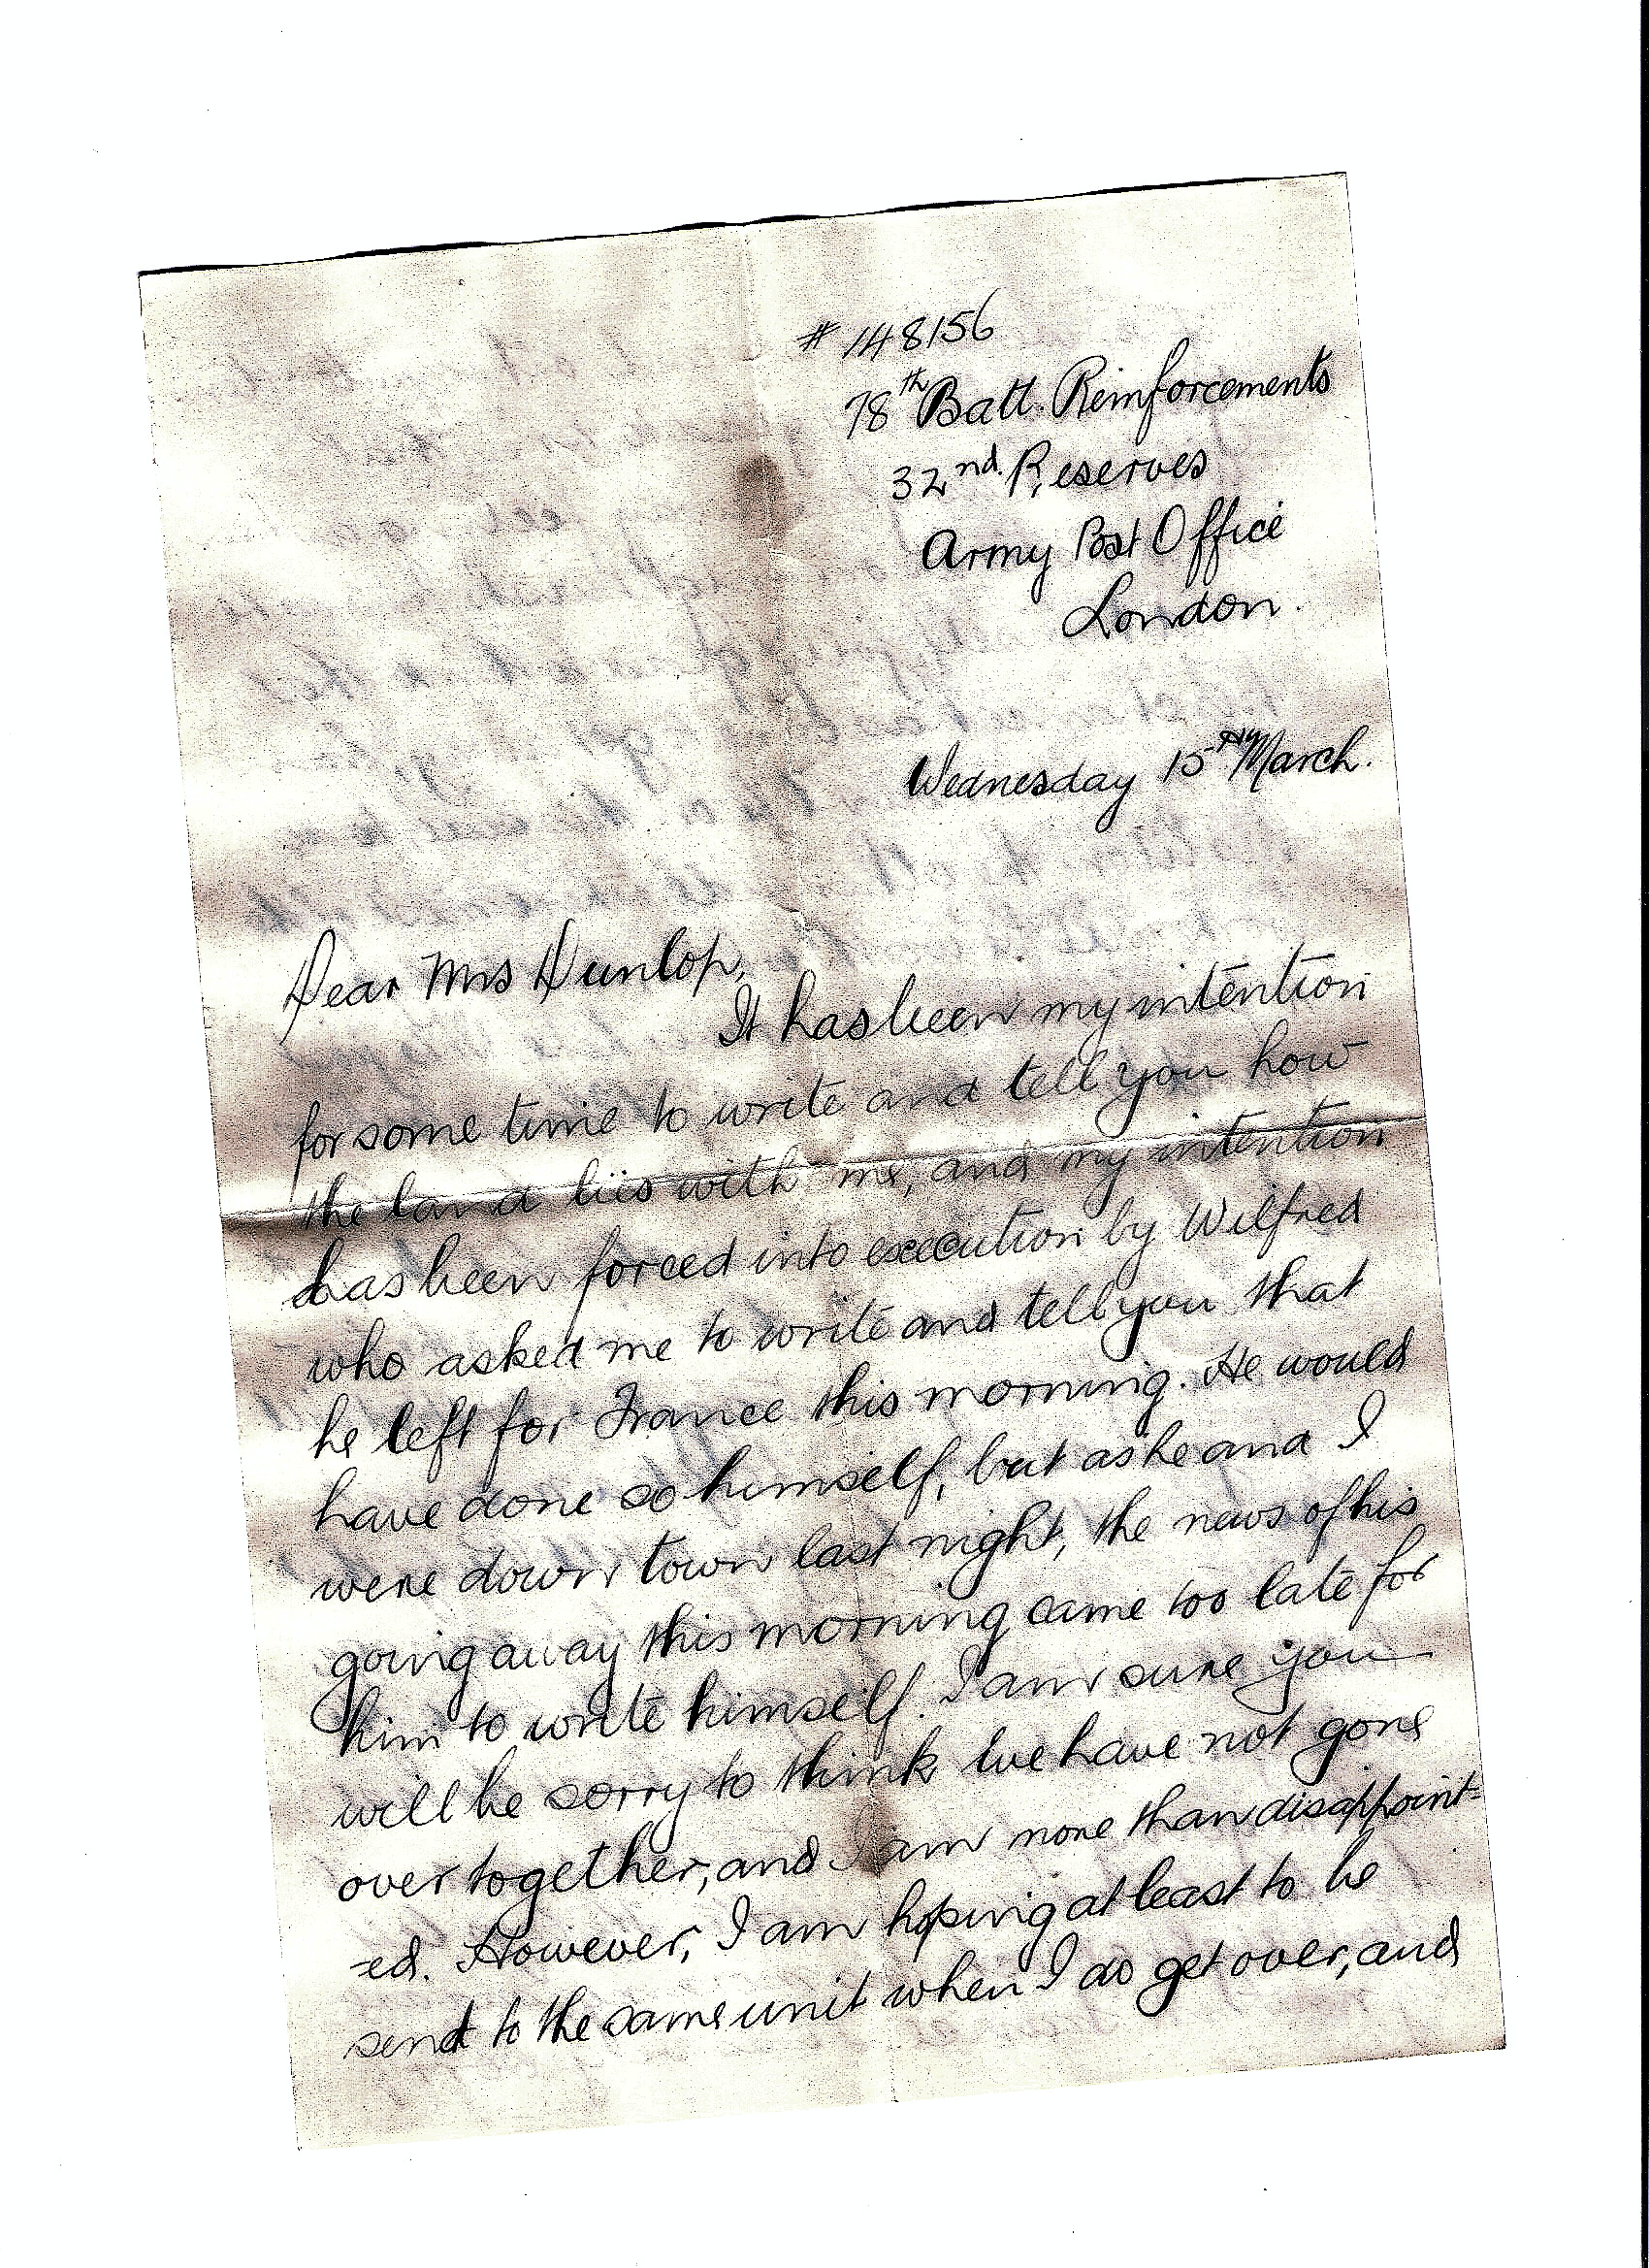 # 148156
78th Batt. Reinforcements
32nd. Reserves
Army Post Office
London.
Wednesday 15th March.
Dear Mrs Dunlop,
It has been my intention
for some time to write and tell you how
the land liis with me, and my intention
has been forced into execution by Wilfred
who asked me to write and tell you that
he left for France this morning. He would
have done so himself, but as he and I
were down town last night, the news of his
going away this morning came too late for
him to write himself. I am sure you
will be sorry to think we have not gone
over together, and I am more than disappoint-
-ed. However, I am hoping at least to be
send to the same unit when I do get over, and